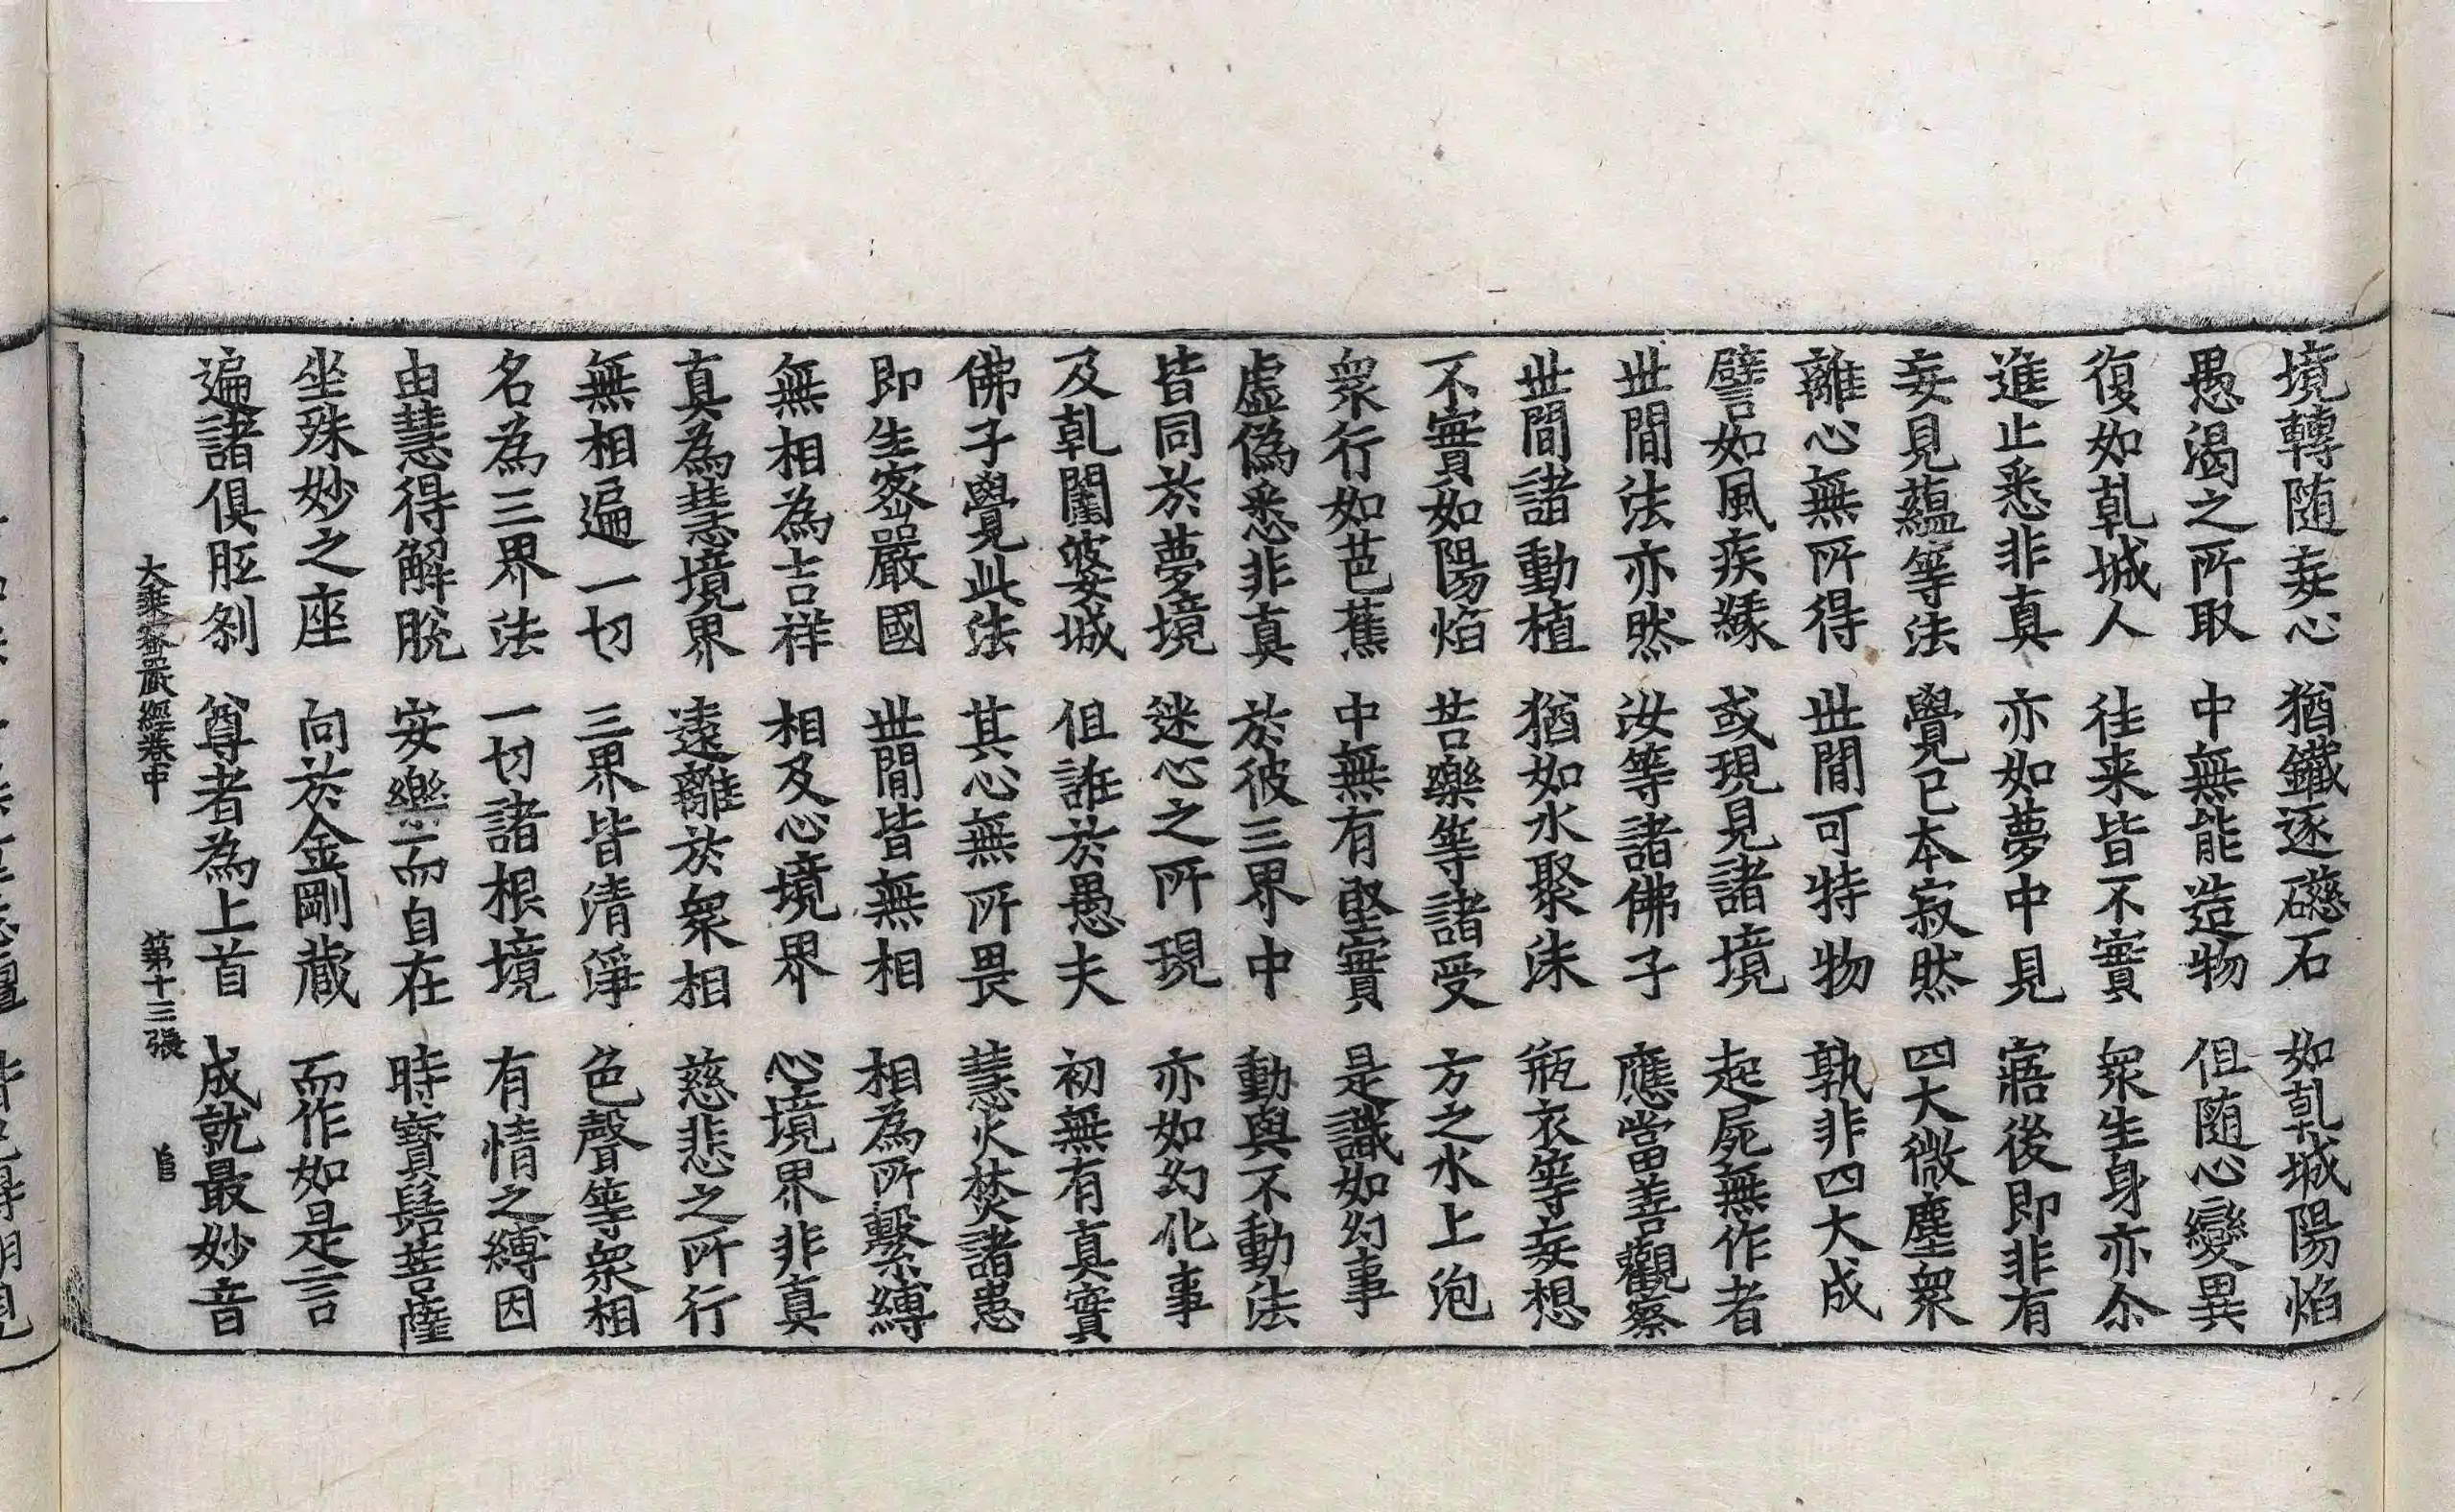 境轉随妄心　猶鐵逐礠石　如乹城陽焰
愚渴之所取　中無能造物　但随心變異
復如乹城人　徃来皆不實　衆生身亦尒
進止悉非真　亦如夢中見　寤後即非有
妄見蘊等法　覺已本寂然　四大微塵衆
離心無所得　世間可持物　孰非四大成
譬如風疾緣　或現見諸境　起屍無作者
世間法亦然　汝等諸佛子　應當善觀察
世間諸動植　猶如水聚沫　瓶衣等妄想
不實如陽焰　苦樂等諸受　方之水上泡
衆行如芭蕉　中無有堅實　是識如幻事
虛偽悉非真　於彼三界中　動與不動法
皆同於夢境　迷心之所現　亦如幻化事
及乹闥婆城　但誑於愚夫　初無有真實
佛子覺此法　其心無所畏　慧火焚諸患
即生密嚴國　世間皆無相　相為所繫縛
無相為吉祥　相及心境界　心境界非真
真為慧境界　遠離於衆相　慈悲之所行
無相遍一切　三界皆清淨　色聲等衆相
名為三界法　一切諸根境　有情之縛因
由慧得解脫　安樂而自在　時寶髻菩薩
坐殊妙之座　向於金剛藏　而作如是言
遍諸俱胝剎　尊者為上首　成就最妙音
大乘密嚴經卷中　第十三張